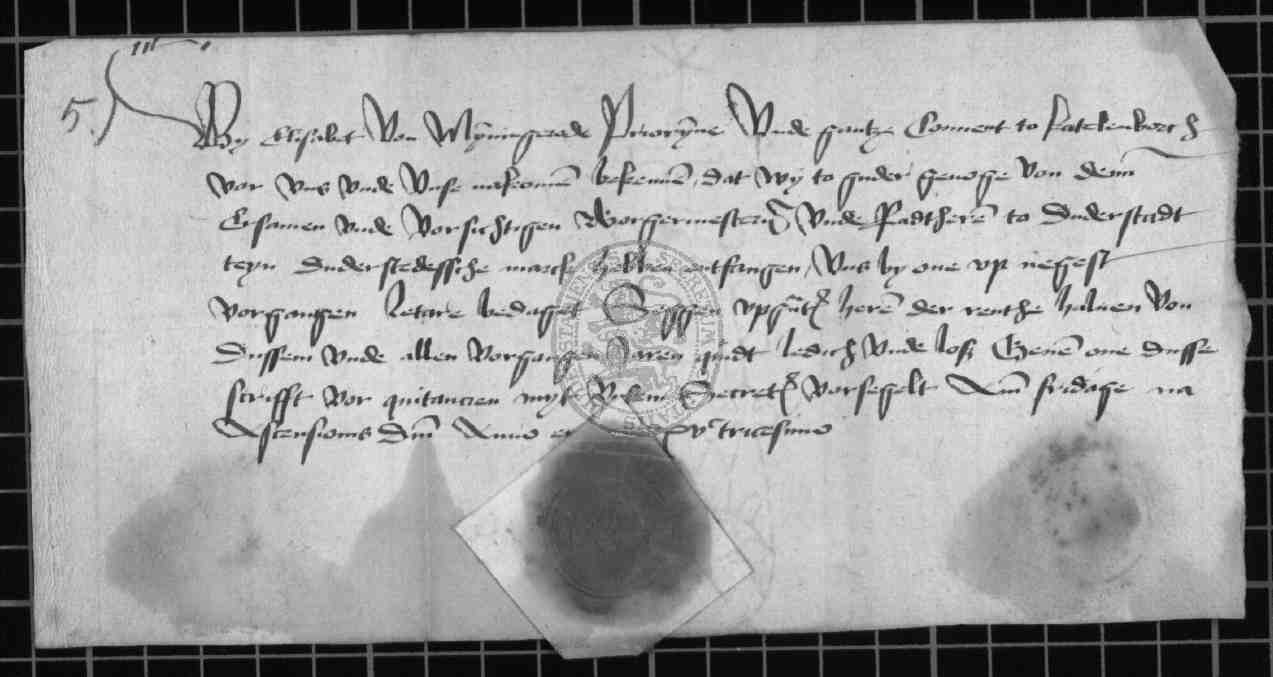 5.
Wy Elisabet Von Mÿnningerode Priorÿne Vnde gantze Conuent to Katelenborch
vor vns vnde Vnse nakomē bekennē, dat wÿ to guder genoge Von denn
Ersamen vnde Vorsichtigen Borgermestern Vnde Radtherē to Duderstadt
teyn Duderstedessche marck hebben entfangen, Vns by one vp negest
vorgangen Letare bedaget Seggen heren der renthe haluen Von
Dussem vnde allen Vorgangen Jaren quidt ledich Vnde loß Geuē one dusse
scrifft vor quitancien myt Vnsem Secret Vorsegelt Am fridage na
Ascensionis Dm̄ Anno tricesimo